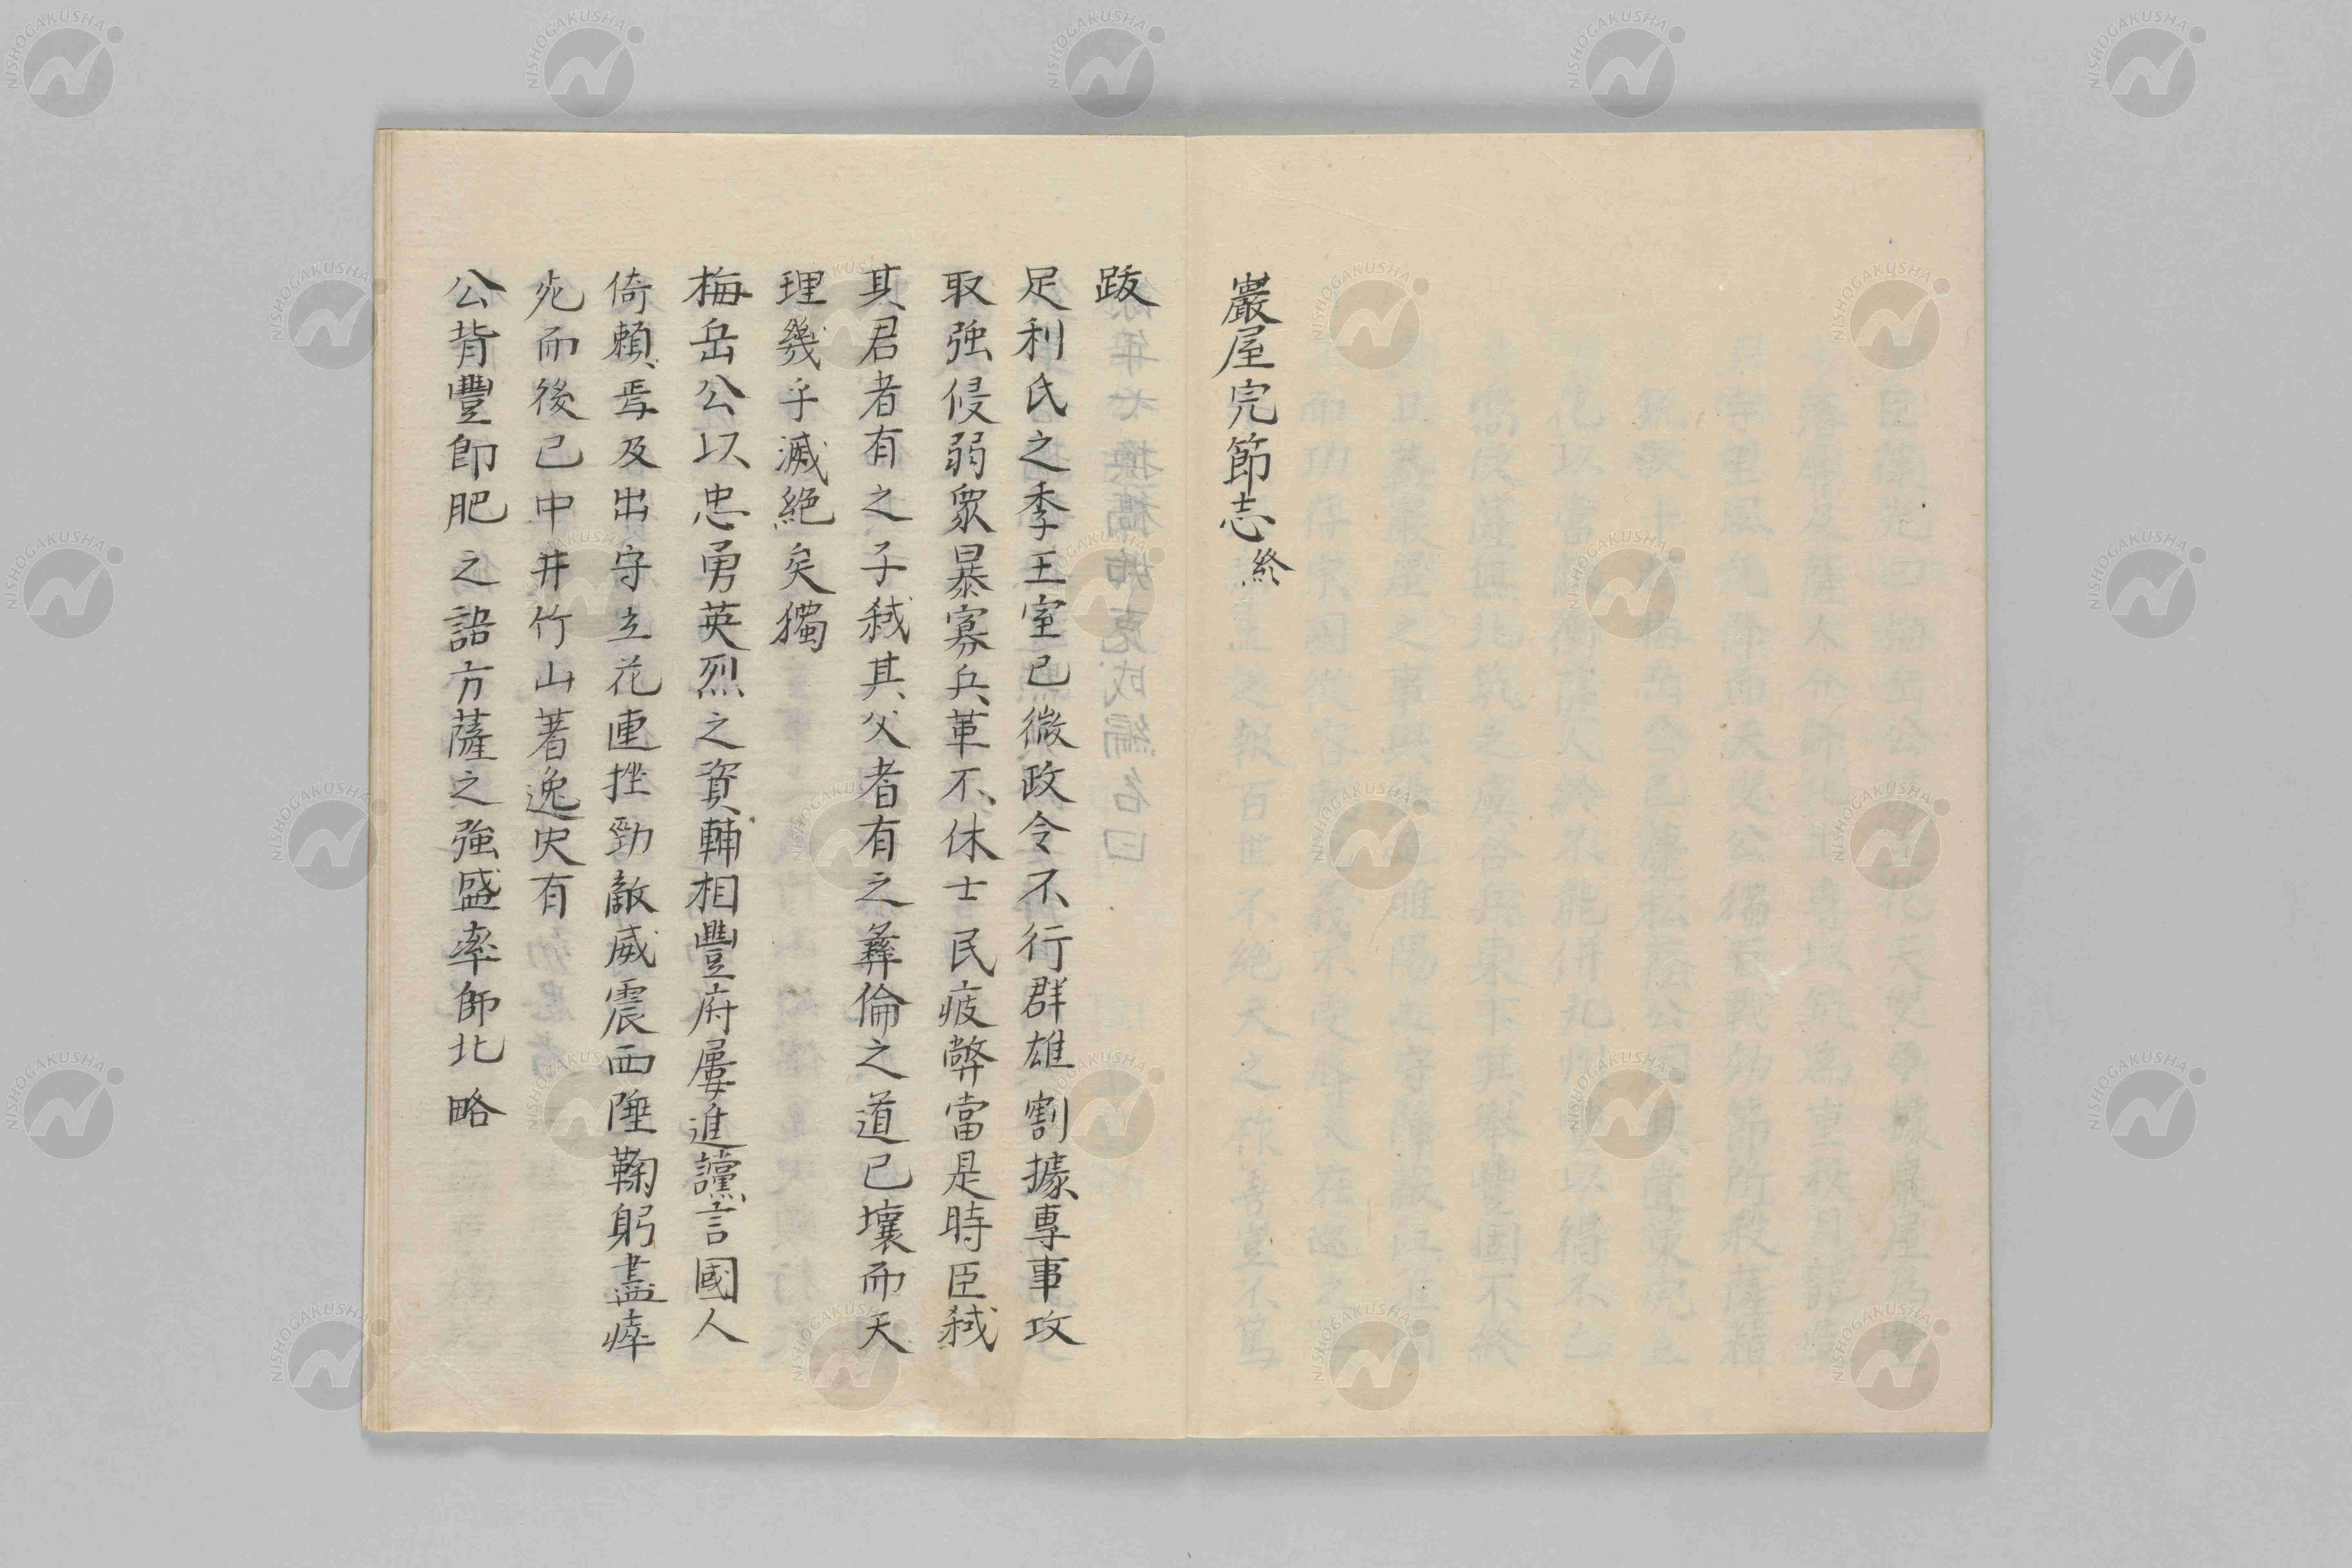 巖屋完節志終
跋
足利氏之季王室已微政令不行群雄割據專事攻
取强侵弱衆暴寡兵革不休士民疲弊當是時臣弑
其君者有之子弑其父者有之彝倫之道已壞而天
理幾乎滅絕矣獨
梅岳公以忠勇英烈之資輔相豐府屢進讜言國人
倚賴焉及出守立花連挫勁敵威震西陲鞠躬盡瘁
死而後已中井竹山著逸史有
公背豐即肥之語方薩之強盛率師北略
NISHOGAKUSHA